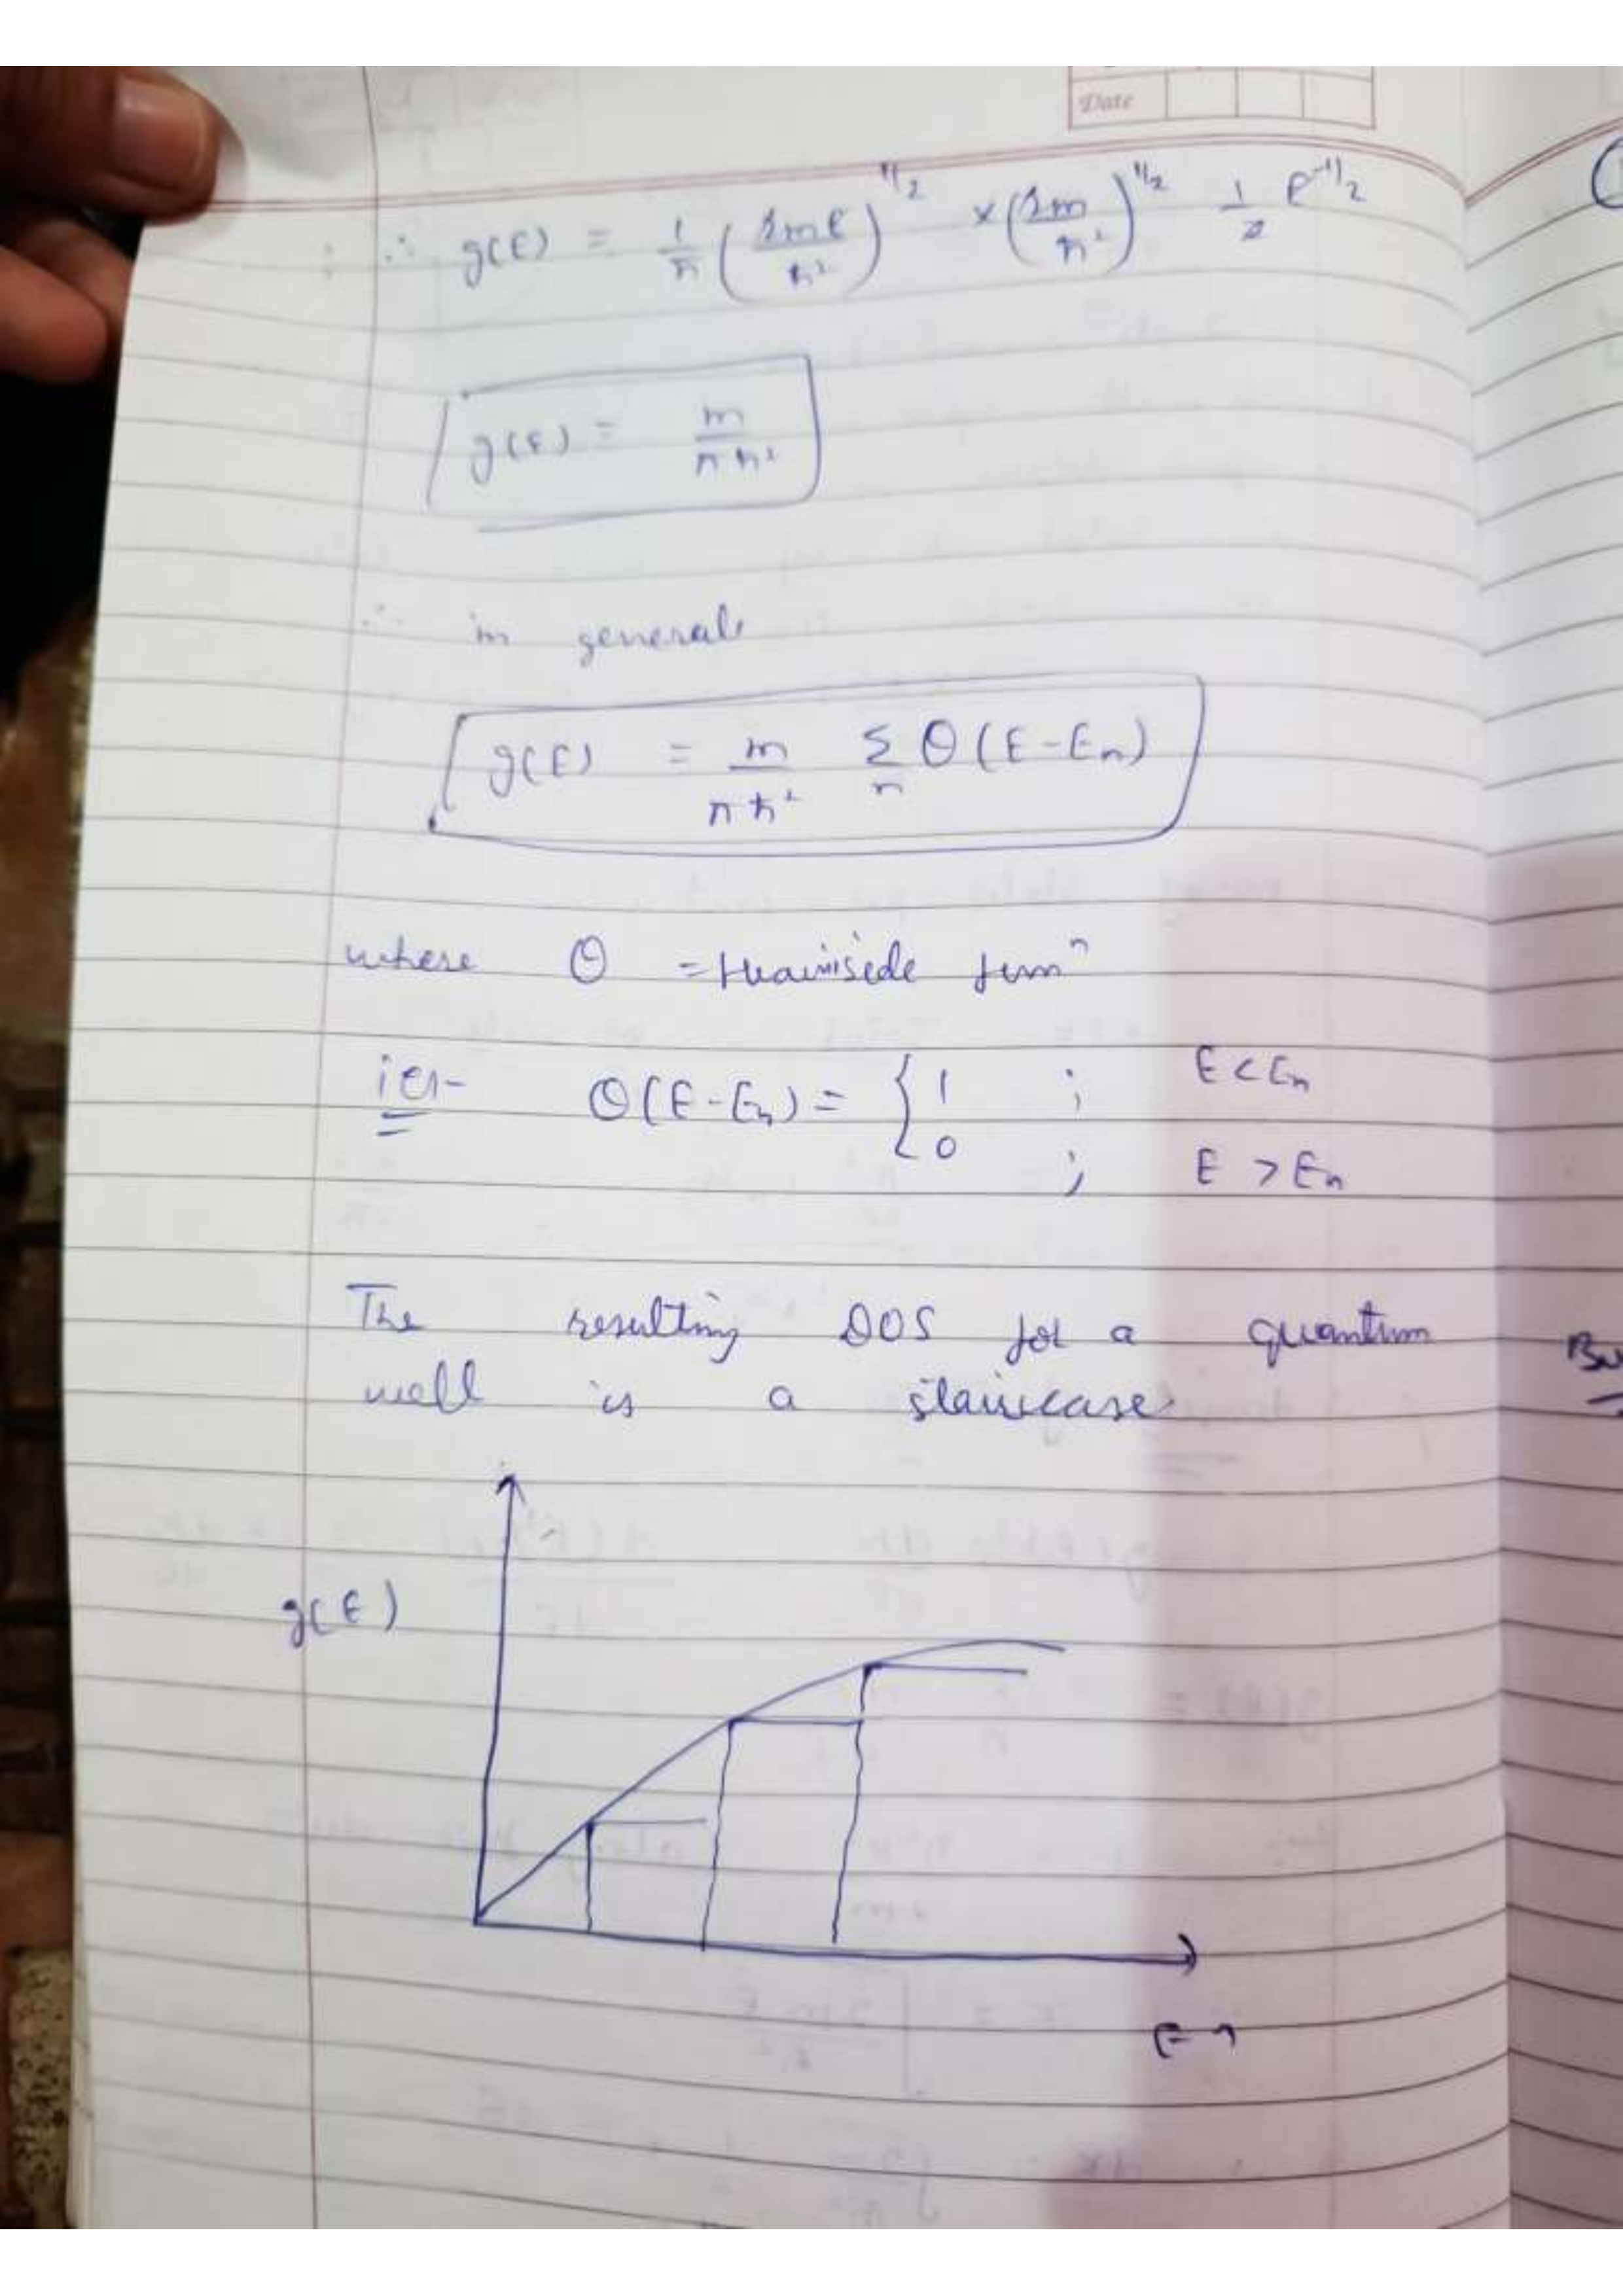 Date
∴ g(E) = 1/π (2mE/ħ²)^1/2 × (2m/ħ²)^1/2 1/2 E^-1/2
g(E) = m/πħ²
∴ in general,
g(E) = m/πħ² Σ_n Θ(E-E_n)
where Θ = Heaviside funⁿ
ie,- Θ(E-E_n) = { 1 ; E < E_n
0 ; E > E_n
The resulting DOS for a quantum
well is a staircase.
g(E)
E →